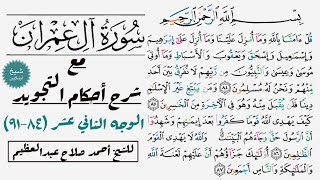 بِسْمِ ٱللَّهِ ٱلرَّحْمَٰنِ ٱلرَّحِيمِ
قُلْ ءَامَنَّا بِٱللَّهِ وَمَآ أُنزِلَ عَلَيْنَا وَمَآ أُنزِلَ عَلَىٰٓ إِبْرَٰهِيمَ
وَإِسْمَٰعِيلَ وَإِسْحَٰقَ وَيَعْقُوبَ وَٱلْأَسْبَاطِ وَمَآ أُوتِيَ
مُوسَىٰ وَعِيسَىٰ وَٱلنَّبِيُّونَ مِن رَّبِّهِمْ لَا نُفَرِّقُ بَيْنَ أَحَدٍ
مِّنْهُمْ وَنَحْنُ لَهُۥ مُسْلِمُونَ ٨٤ وَمَن يَبْتَغِ غَيْرَ ٱلْإِسْلَٰمِ
دِينًا فَلَن يُقْبَلَ مِنْهُ وَهُوَ فِي ٱلْءَاخِرَةِ مِنَ ٱلْخَٰسِرِينَ ٨٥
كَيْفَ يَهْدِي ٱللَّهُ قَوْمًا كَفَرُواْ بَعْدَ إِيمَٰنِهِمْ وَشَهِدُوٓاْ
أَنَّ ٱلرَّسُولَ حَقٌّ وَجَآءَهُمُ ٱلْبَيِّنَٰتُ وَٱللَّهُ لَا يَهْدِي ٱلْقَوْمَ
ٱلظَّٰلِمِينَ ٨٦ أُوْلَٰٓئِكَ جَزَآؤُهُمْ أَنَّ عَلَيْهِمْ لَعْنَةَ ٱللَّهِ
سورة آل عمران
مع
شرح أحكام التجويد
الوجه الثاني عشر (٨٤-٩١)
للشيخ أحمد صلاح عبدالعظيم